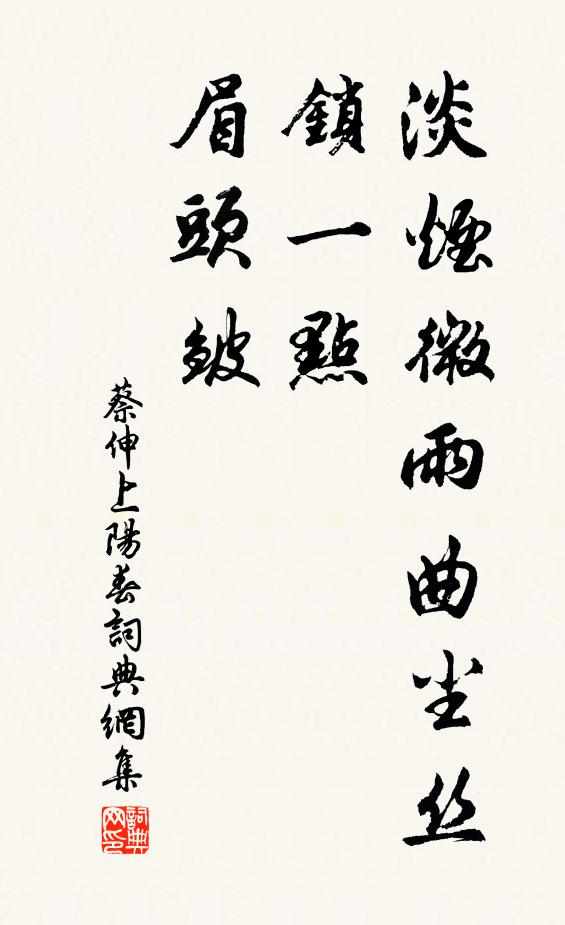 淡煙微雨曲尘丝
鎖一點
眉頭皱
蔡伸上陽春詞典網集
詞典网印